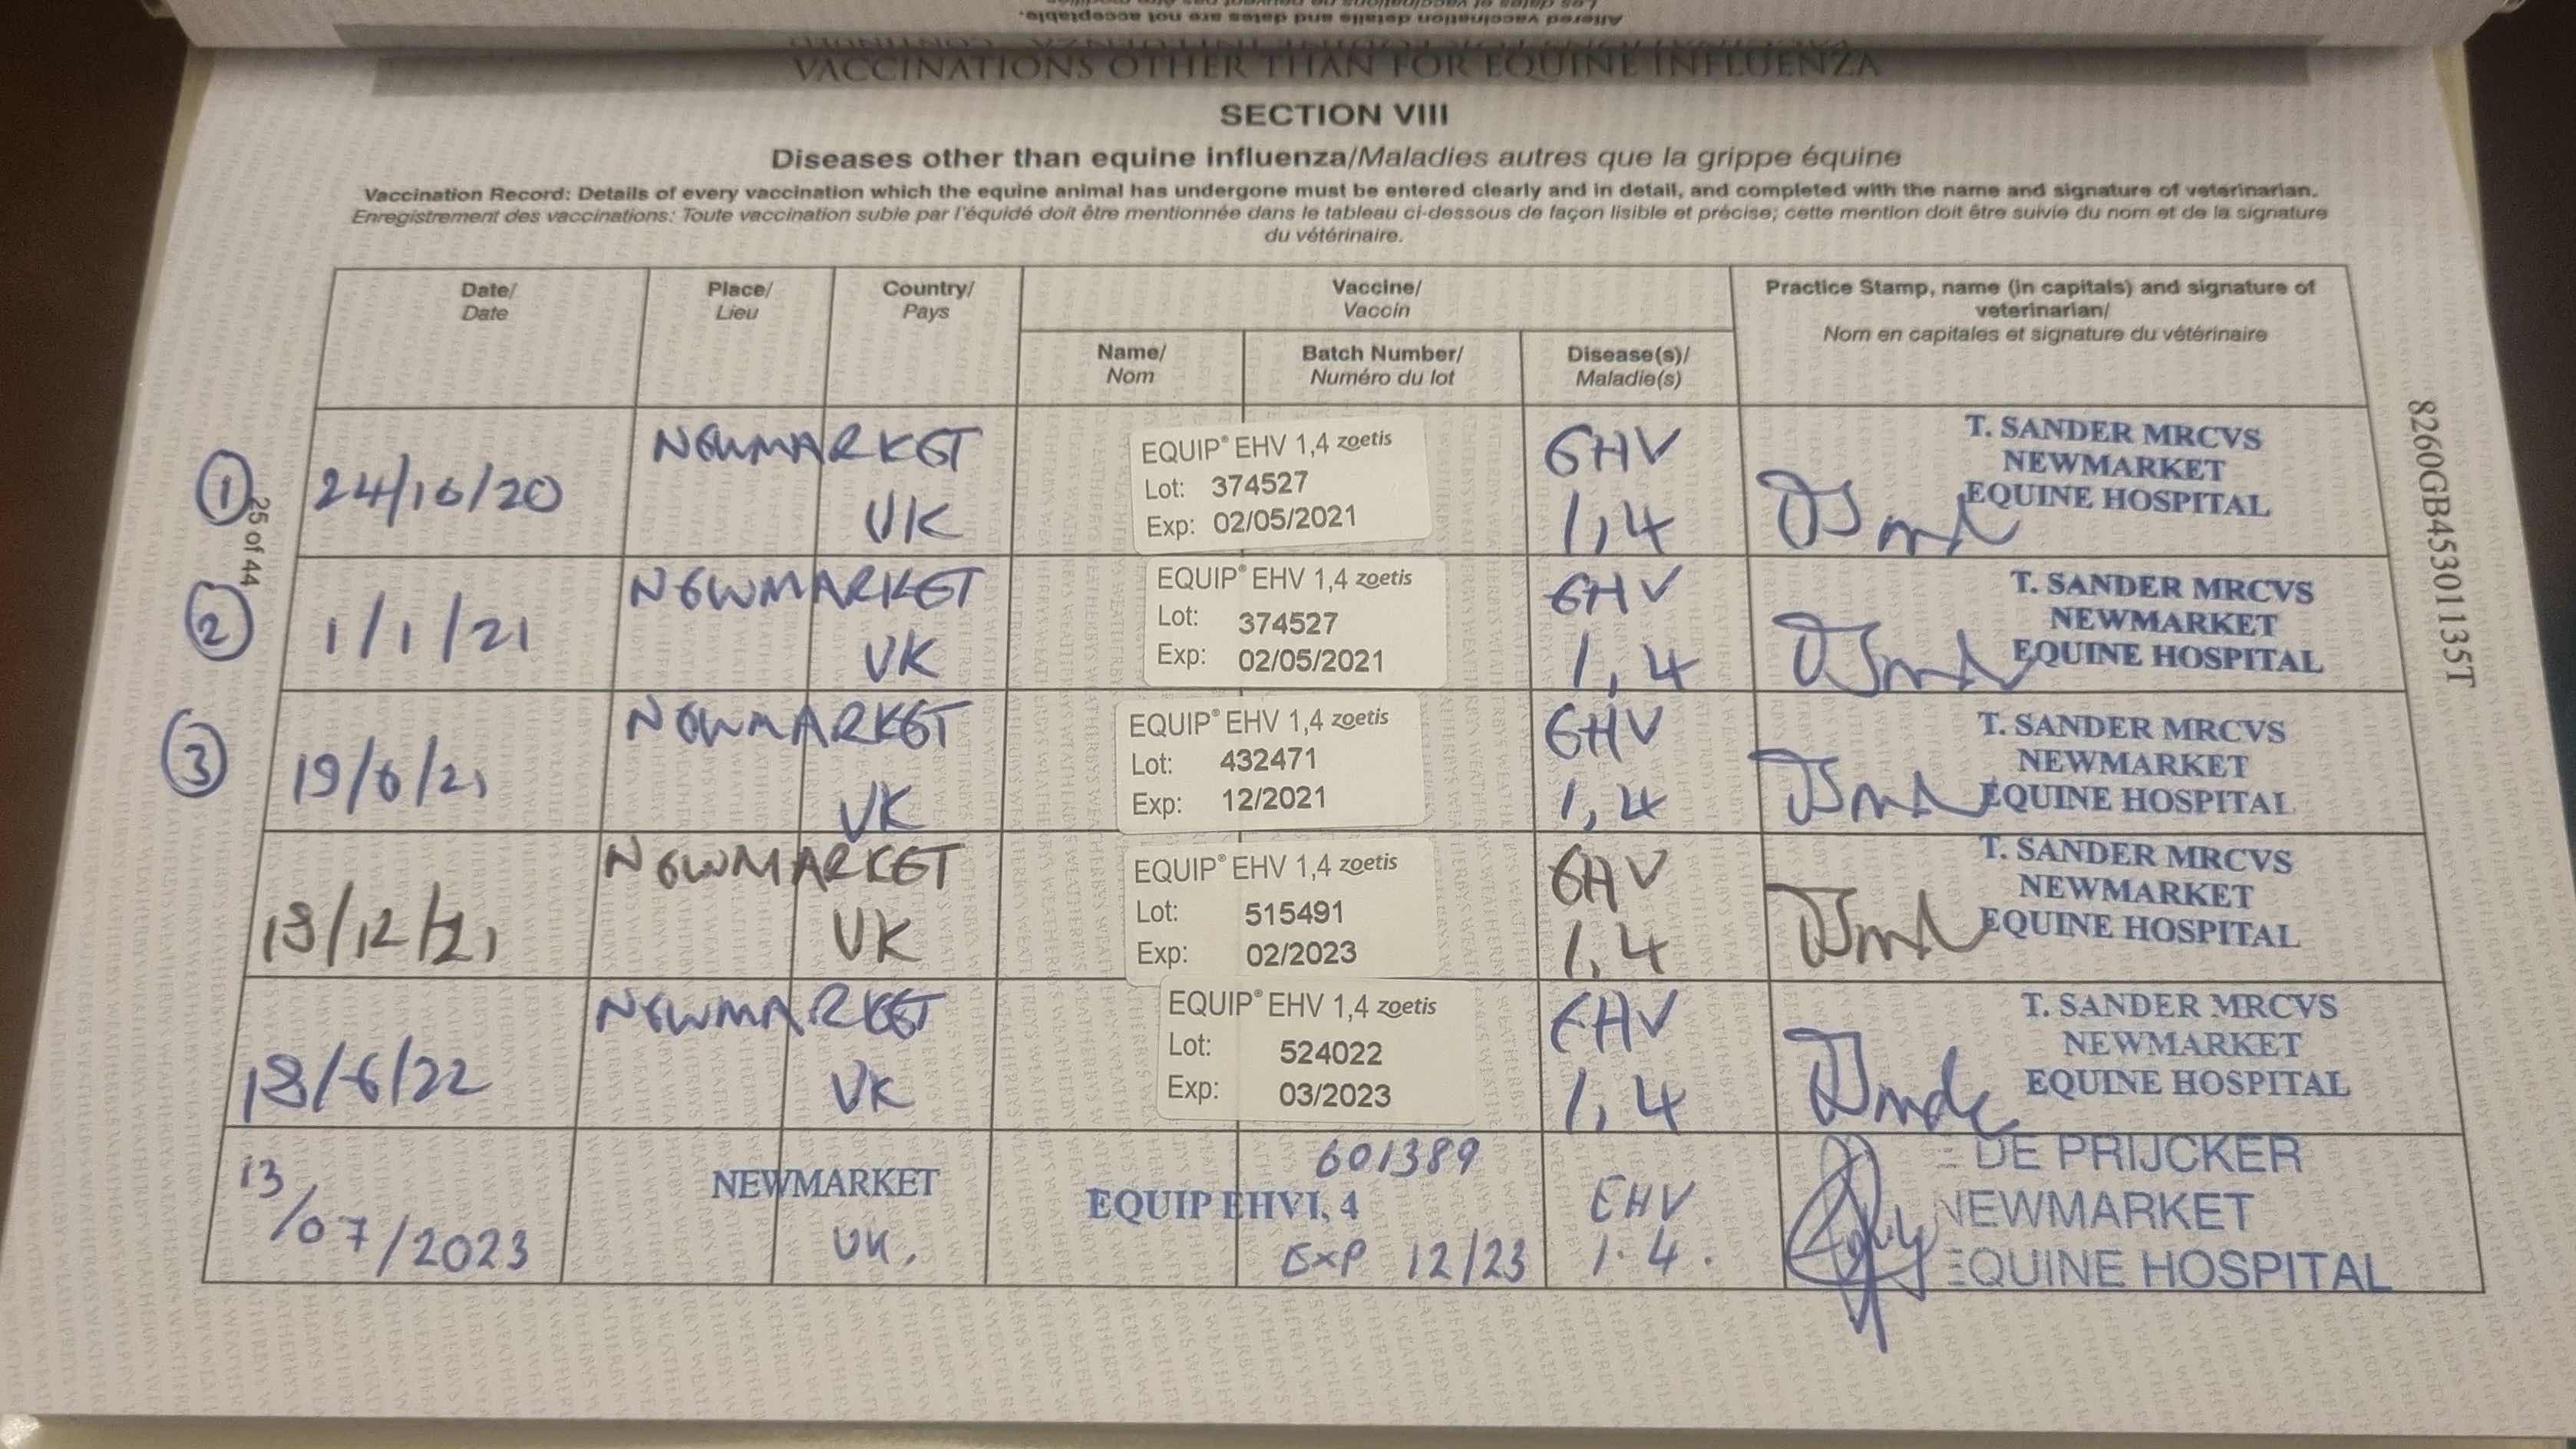 Altered vaccination details and dates are not acceptable.
VACCINATIONS OTHER THAN FOR EQUINE INFLUENZA
SECTION VIII
Diseases other than equine influenza/Maladies autres que la grippe équine
Vaccination Record: Details of every vaccination which the equine animal has undergone must be entered clearly and in detail, and completed with the name and signature of veterinarian.
Enregistrement des vaccinations: Toute vaccination subie par l'équidé doit être mentionnée dans le tableau ci-dessous de façon lisible et précise; cette mention doit être suivie du nom et de la signature
du vétérinaire.
Date/ Place/ Country/ Vaccine/ Practice Stamp, name (in capitals) and signature of
Date Lieu Pays Vaccin veterinarian/
Nom en capitales et signature du vétérinaire
Name/ Batch Number/ Disease(s)/
Nom Numéro du lot Maladie(s)
1 24/10/20 NEWMARKET UK
EQUIP® EHV 1,4 zoetis
Lot: 374527
Exp: 02/05/2021
EHV
1,4
T. SANDER MRCVS
NEWMARKET
EQUINE HOSPITAL
2 1/1/21 NEWMARKET UK
EQUIP® EHV 1,4 zoetis
Lot: 374527
Exp: 02/05/2021
EHV
1,4
T. SANDER MRCVS
NEWMARKET
EQUINE HOSPITAL
3 19/6/21 NEWMARKET UK
EQUIP® EHV 1,4 zoetis
Lot: 432471
Exp: 12/2021
EHV
1,4
T. SANDER MRCVS
NEWMARKET
EQUINE HOSPITAL
18/12/21 NEWMARKET UK
EQUIP® EHV 1,4 zoetis
Lot: 515491
Exp: 02/2023
EHV
1,4
T. SANDER MRCVS
NEWMARKET
EQUINE HOSPITAL
18/6/22 NEWMARKET UK
EQUIP® EHV 1,4 zoetis
Lot: 524022
Exp: 03/2023
EHV
1,4
T. SANDER MRCVS
NEWMARKET
EQUINE HOSPITAL
13/07/2023 NEWMARKET UK.
601389
EQUIP EHV1, 4
Exp 12/23
EHV
1.4.
DE PRIJCKER
NEWMARKET
EQUINE HOSPITAL
25 of 44
8260GB45301135T